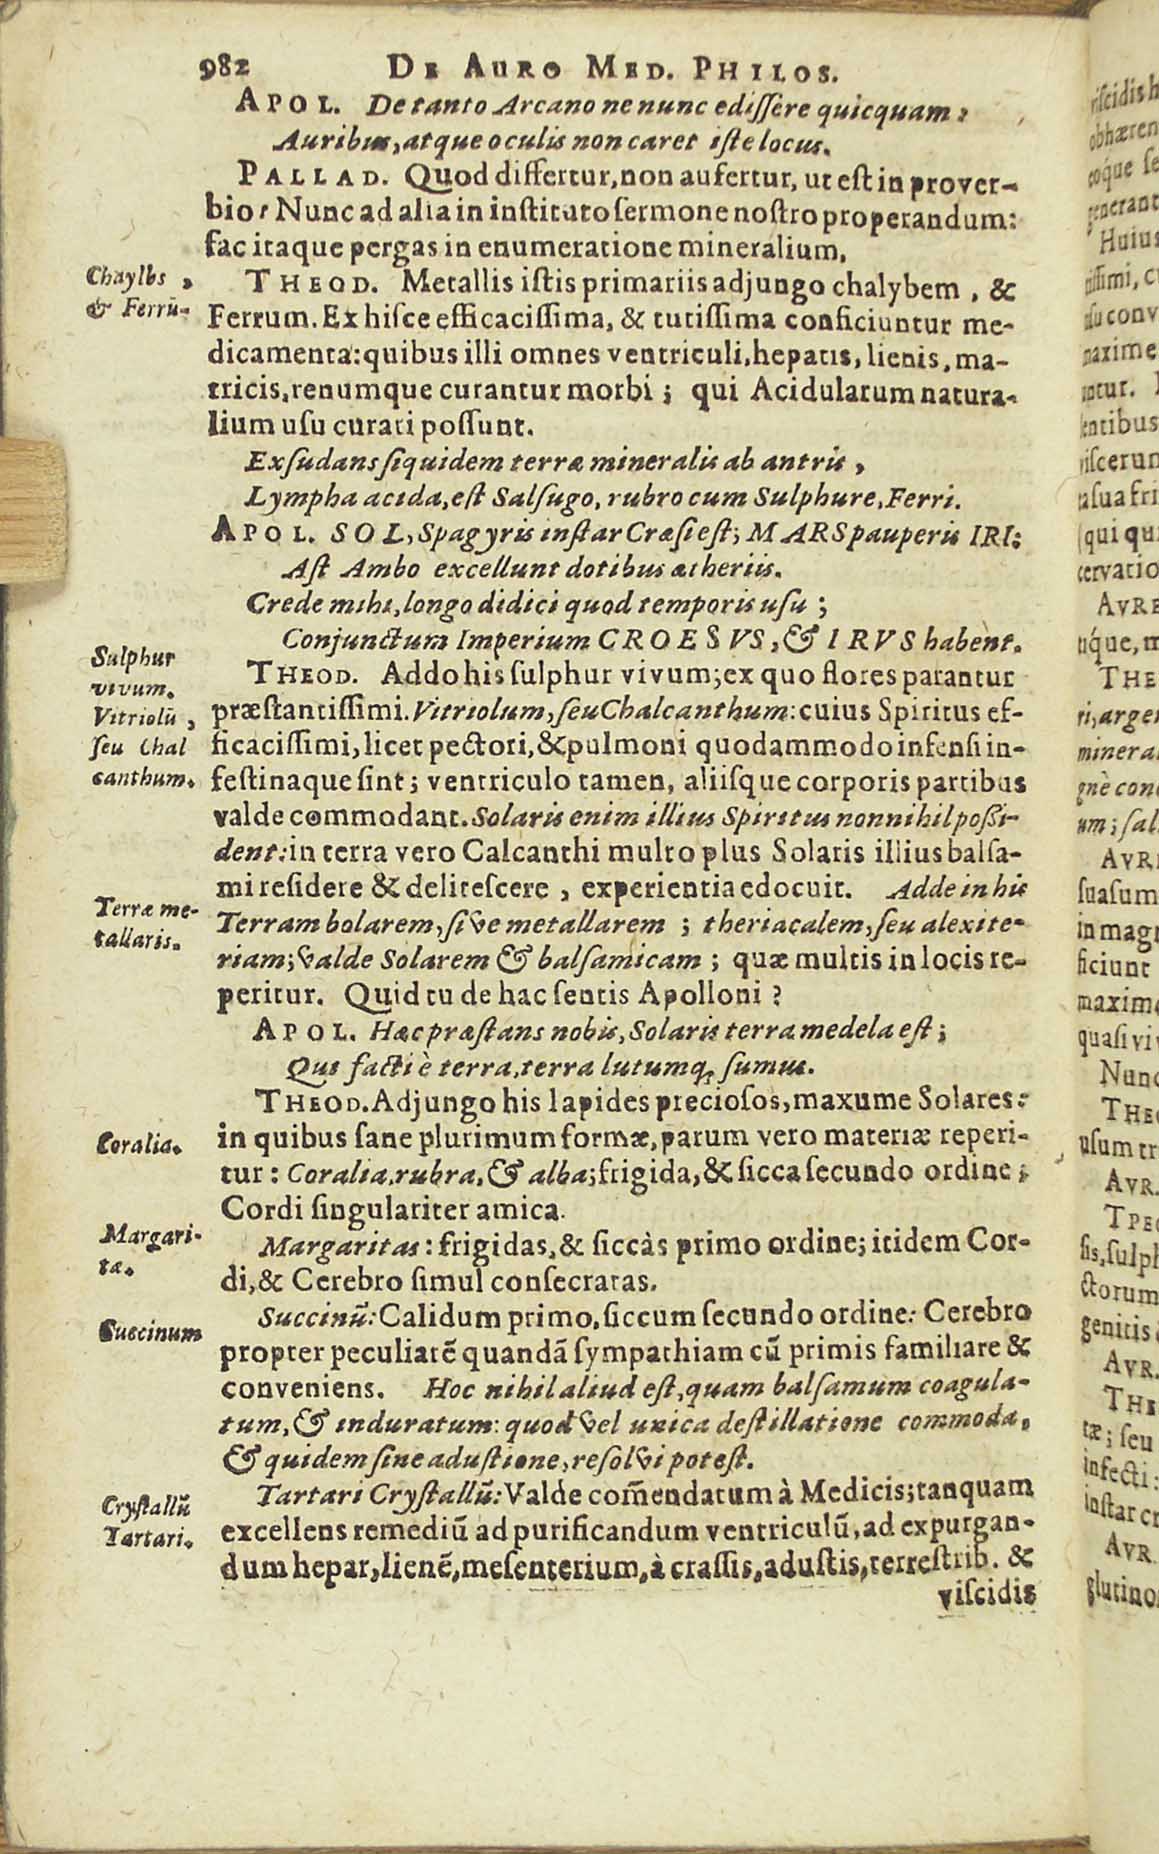 982 DE AURO MED. PHILOS.
APOL. De tanto Arcano ne nunc edissere quicquam;
Auribus, atque oculis non caret iste locus.
PALLAD. Quod differtur, non aufertur, ut est in prover-
bio: Nunc ad alia in instituto sermone nostro properandum:
fac itaque pergas in enumeratione mineralium.
Chaylbs,
& Ferrū-
THEOD. Metallis istis primariis adjungo chalybem, &
Ferrum. Ex hisce efficacissima, & tutissima conficiuntur me-
dicamenta: quibus illi omnes ventriculi, hepatis, lienis, ma-
tricis, renumque curantur morbi; qui Acidularum natura-
lium usu curati possunt.
Exsudans siquidem terræ mineralis ab antris,
Lympha acida, est Salsugo, rubro cum Sulphure, Ferri.
APOL. SOL, Spagyris instar Cræsi est; MARS pauperis IRI;
Ast Ambo excellunt dotibus ætheriis.
Crede mihi, longo didici quod temporis usu;
Conjunctum Imperium CROESVS, & IRVS habent.
Sulphur
vivum.
Vitriolū,
seu Chal
canthum.
THEOD. Addo his sulphur vivum; ex quo flores parantur
præstantissimi. Vitriolum, seu Chalcanthum: cuius Spiritus ef-
ficacissimi, licet pectori, & pulmoni quodammodo infensi in-
festinaque sint; ventriculo tamen, aliisque corporis partibus
valde commodant. Solaris enim illius Spiritus nonnihil possi-
dent: in terra vero Calcanthi multo plus Solaris illius balsa-
mi residere & delitescere, experientia edocuit. Adde in his
Terræ me-
tallaris.
Terram bolarem, sive metallarem; theriacalem, seu alexite-
riam; valde Solarem & balsamicam; quæ multis in locis re-
peritur. Quid tu de hac sentis Apolloni?
APOL. Hæc præstans nobis, Solaris terra medela est;
Qui facti è terra, terra lutumq; sumus.
THEOD. Adjungo his lapides preciosos, maxume Solares:
Coralia.
in quibus sane plurimum formæ, parum vero materiæ reperi-
tur: Coralia, rubra, & alba; frigida, & sicca secundo ordine;
Cordi singulariter amica.
Margari-
tæ.
Margaritas: frigidas, & siccàs primo ordine; itidem Cor-
di, & Cerebro simul consecratas.
Succinum
Succinū: Calidum primo, siccum secundo ordine: Cerebro
propter peculiarē quandā sympathiam cū primis familiare &
conveniens. Hoc nihil aliud est, quam balsamum coagula-
tum, & induratum: quod vel unica destillatione commoda,
& quidem sine adustione, resolvi potest.
Crystallū
Tartari.
Tartari Crystallū: Valde com̄endatum à Medicis; tanquam
excellens remediū ad purificandum ventriculū, ad expurgan-
dum hepar, lienē, mesenterium, à crassis, adustis, terrestrib. &
viscidis